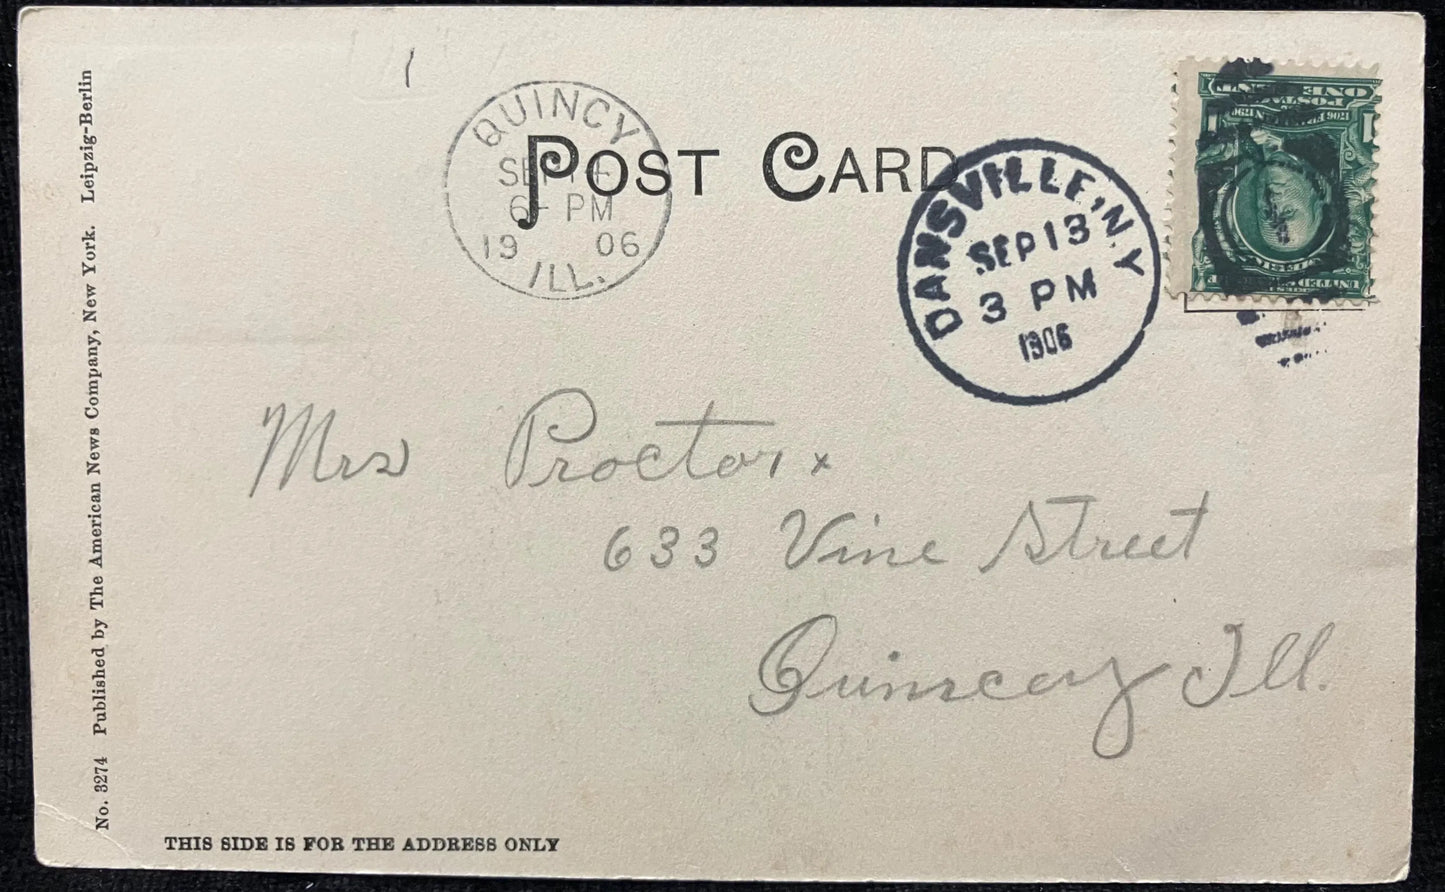 POST CARD
QUINCY
SEP 14
6- PM
19 06
ILL.
DANSVILLE, N.Y
SEP 13
3 PM
1906
ONE
POSTAGE
1706 FRANKLIN 1790
1 1
UNITED STATES
Mrs Proctor
633 Vine Street
Quincey Ill.
No. 3274 Published by The American News Company, New York. Leipzig-Berlin
THIS SIDE IS FOR THE ADDRESS ONLY